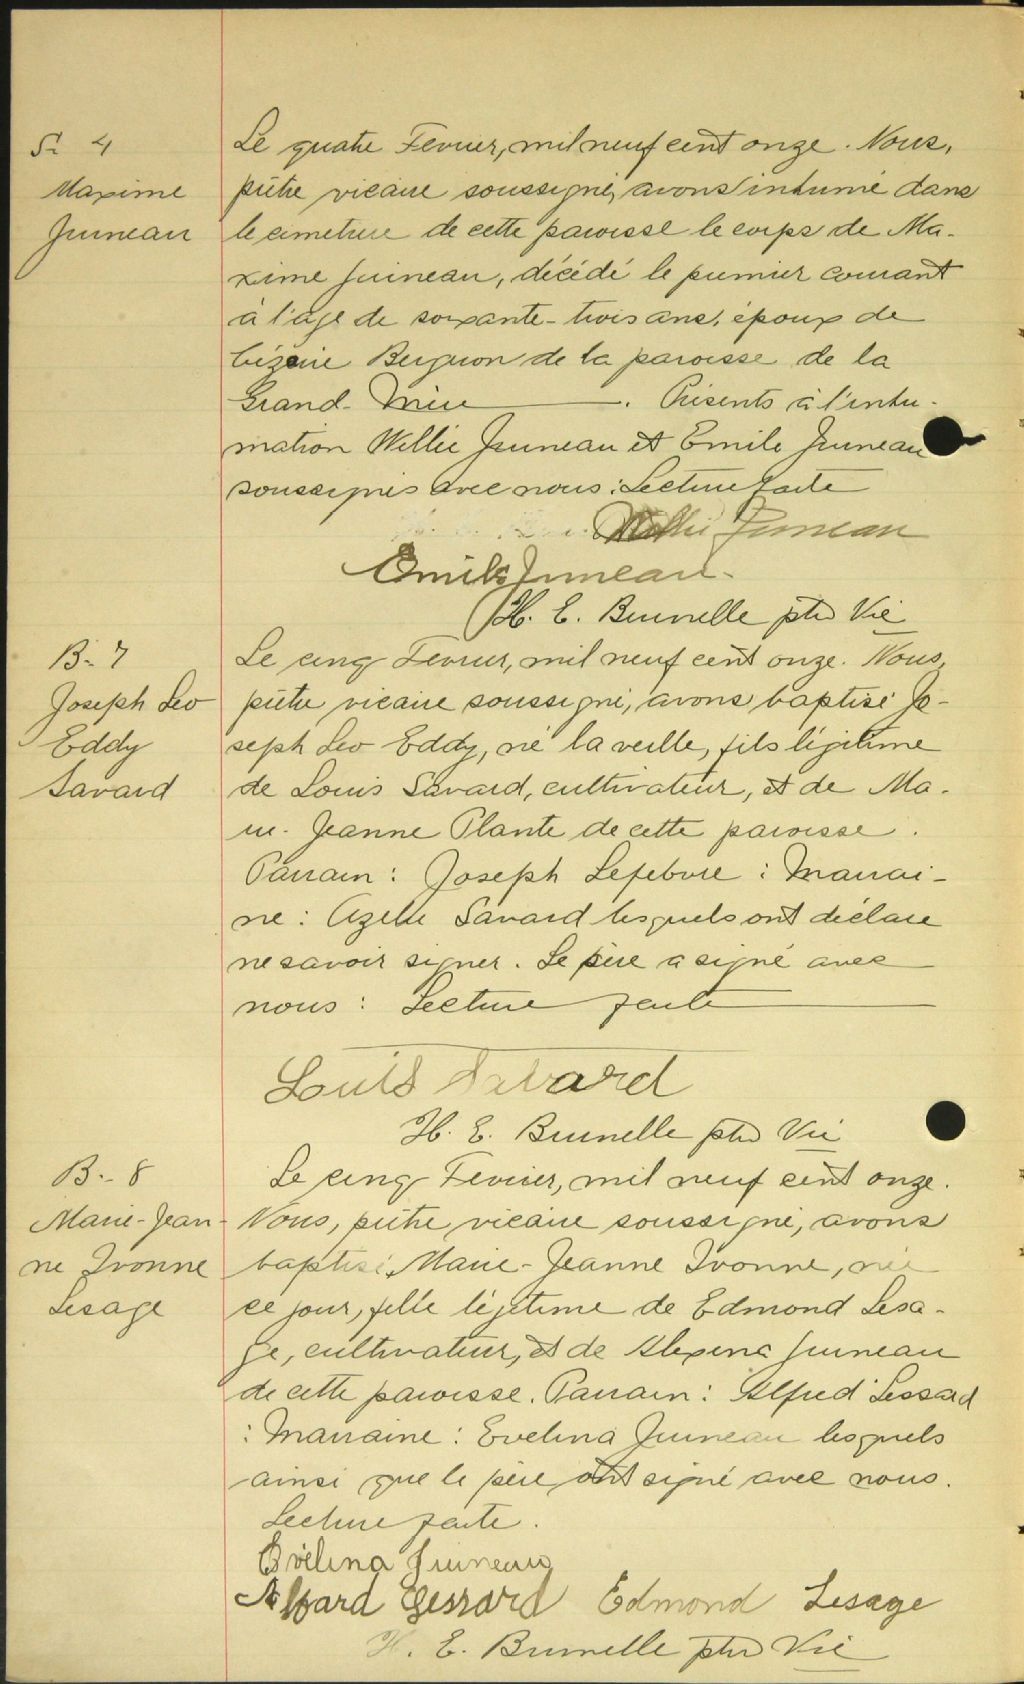 S- 4
Maxime
Juineau
Le quatre Fevrier, mil neuf cent onze. Nous,
prêtre vicaire soussigné, avons inhumé dans
le cimetière de cette paroisse le corps de Ma-
xime Juineau, décédé le premier courant
à l'age de soixante-trois ans, époux de
Lézaire Bergeron de la paroisse de la
Grand-Mère. Présents à l'inhu-
mation Willie Juneau et Emile Juneau
soussignés avec nous: Lecture faite
Willie Juneau
Emile Juneau
H. E. Brunelle ptre Vic
B- 7
Joseph Leo
Eddy
Savard
Le cinq Fevrier, mil neuf cent onze. Nous,
prêtre vicaire soussigné, avons baptisé Jo-
seph Leo Eddy, né la veille, fils légitime
de Louis Savard, cultivateur, et de Ma-
rie-Jeanne Plante de cette paroisse.
Parrain: Joseph Lefebvre: Marrai-
ne: Azelie Savard lesquels ont déclaré
ne savoir signer. Le père a signé avec
nous: Lecture faite
Louis Savard
H. E. Brunelle ptre Vic
B- 8
Marie-Jean-
ne Ivonne
Lesage
Le cinq Fevrier, mil neuf cent onze.
Nous, prêtre vicaire soussigné, avons
baptisé, Marie-Jeanne Ivonne, née
ce jour, fille légitime de Edmond Lesa-
ge, cultivateur, et de Alexina Juineau
de cette paroisse. Parrain: Alfred Lessard
: Marraine: Evelina Juineau lesquels
ainsi que le père ont signé avec nous.
Lecture faite.
Evélina Juineau
Alfard Lessard Edmond Lesage
H. E. Brunelle ptre Vic